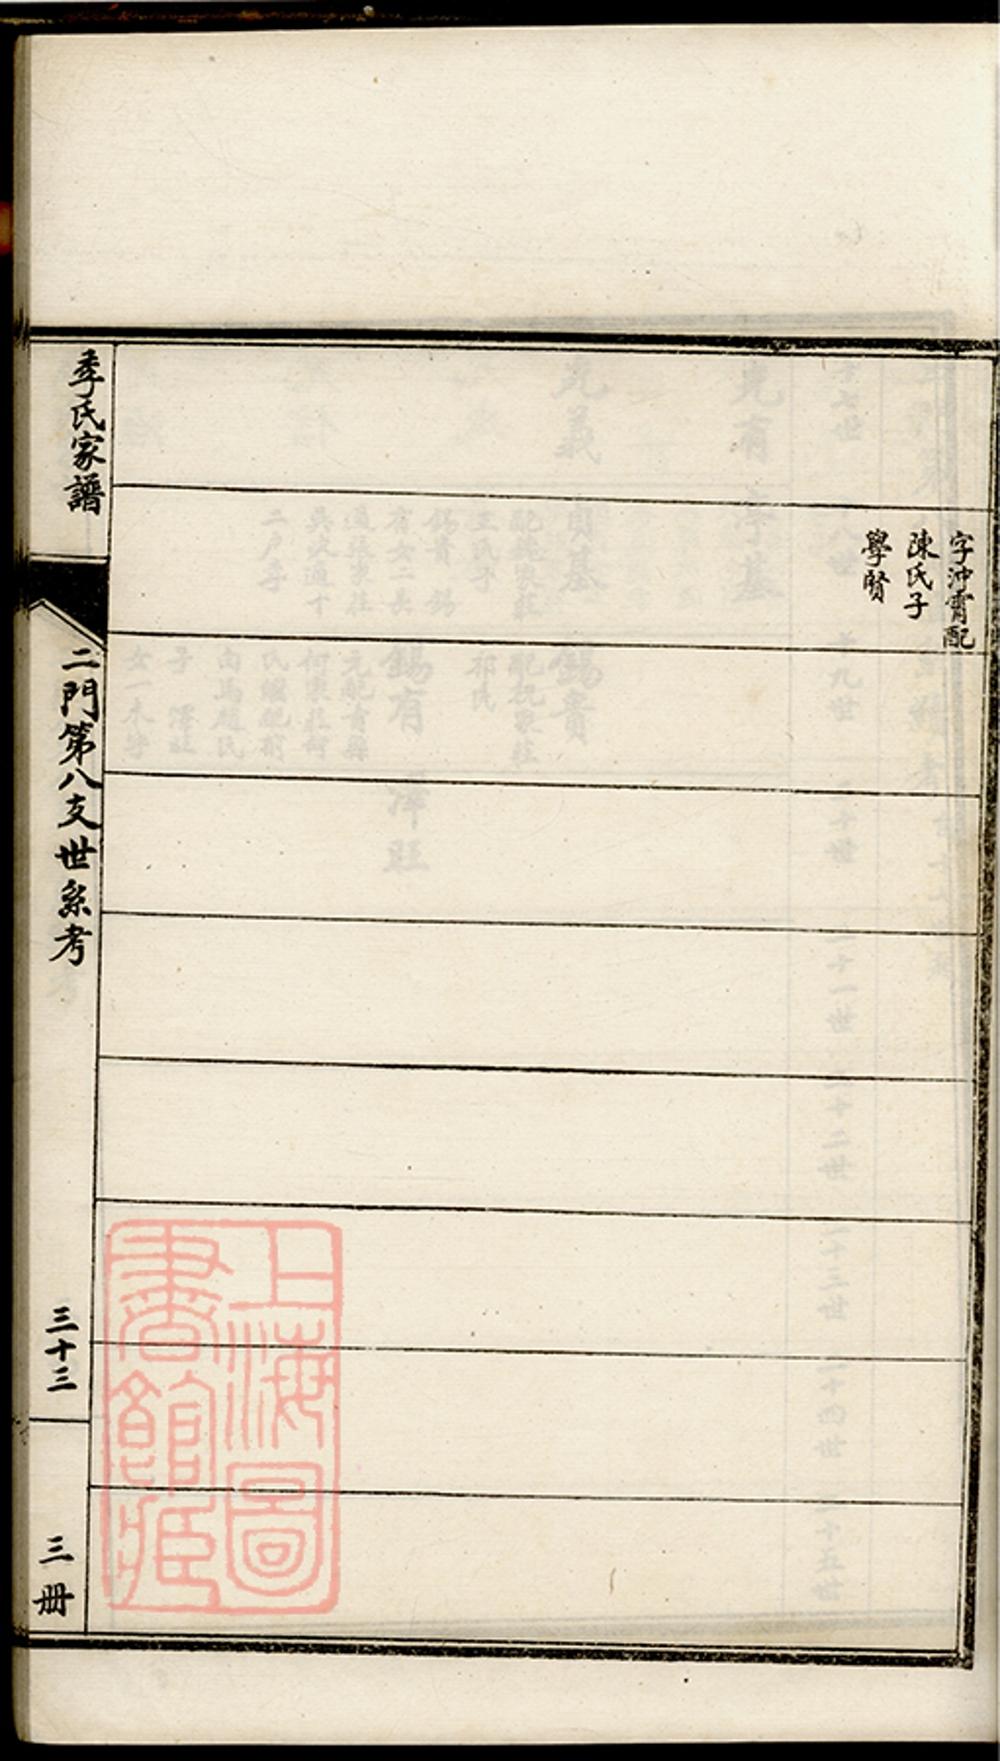 字沖霄配
陳氏子
學賢
季氏家譜
二門第八支世系考
三十三
三册
上海圖
書館藏